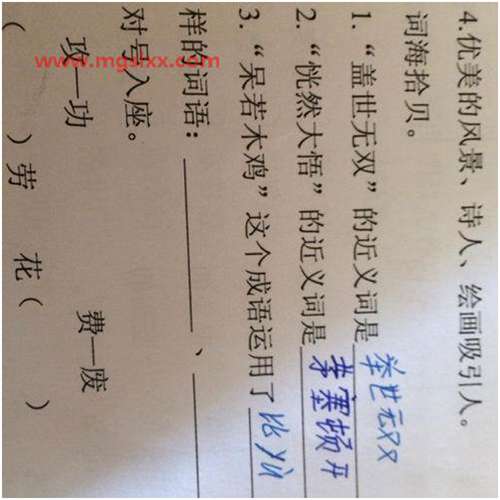 4.优美的风景、诗人、绘画吸引人。
词海拾贝。
1.“盖世无双”的近义词是举世无双
2.“恍然大悟”的近义词是茅塞顿开
3.“呆若木鸡”这个成语运用了比
样的词语：、
对号入座。
攻—功 费—废
( )劳 花( )